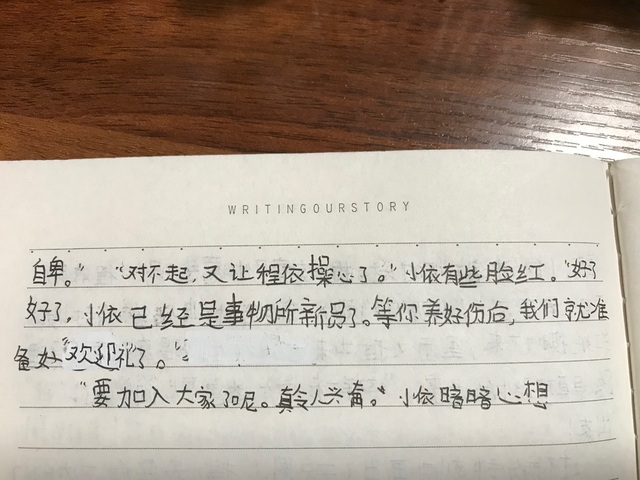 WRITINGOURSTORY
自卑。”“对不起,又让程依操心了。”小依有些脸红。“好了
好了,小依已经是事物所新员了。等你养好伤后,我们就准
备好“欢迎礼了。”
“要加入大家了呢。真令人兴奋。”小依暗暗心想